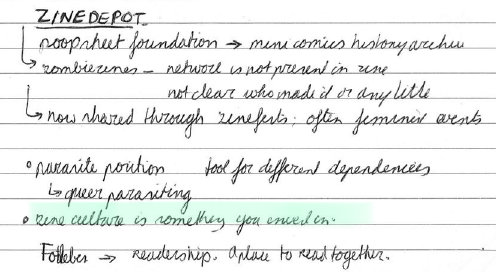 ZINEDEPOT
poopsheet foundation → mini comics history archive
↳ zombiezines – network is not present in zine
not clear who made it or any title
↳ now shared through zinefests; often feminist events
• parasite position tool for different dependencies
↳ queer parasiting
• zine culture is something you in.
→ readership. A place to read together.